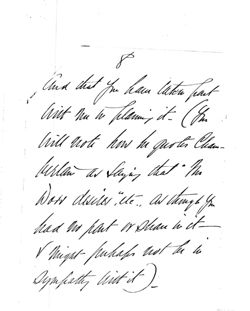 8
And that you have taken part
with me in planning it – (You
will note how he quotes Cham-
berlain as saying that "Mr
Ross desires" etc – as though you
had no part or share in it –
& might perhaps not be in
sympathy with it) –